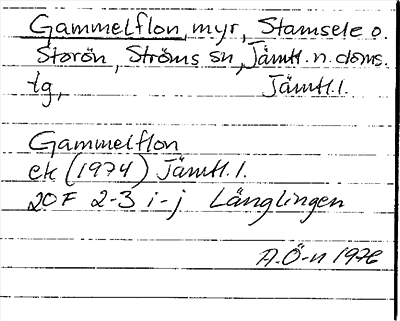 Gammelflon, myr, Stamsele o.
Storön, Ströms sn, Jämtl. n. doms.
tg, Jämtl. l.
Gammelflon
ek (1974) Jämtl. l.
20F 2-3 i-j Länglingen
A.Ö-n 1976